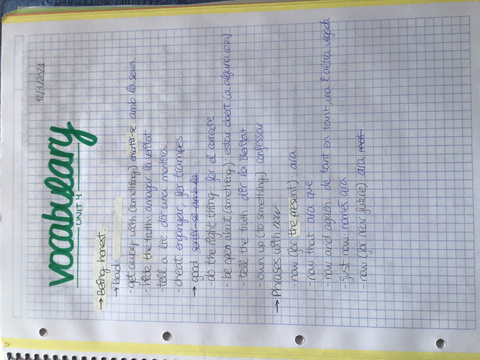 12/1/2021
vocabulary
UNIT 4
→ Being honest
→ bad
- get away with (something) enviar-se amb la seva
- hide the truth amagar la veritat
tell a lie dir una mentida
- cheat enganyar, fer trampes
→ good
- do the right thing fer el correcte
- be open about (something) estar obert (a alguna cosa)
tell the truth dir la veritat
- own up (to something) confessar
→ Phrases with now
- now (for the present) ara
now that ara que
- now and again de tant en tant, una i altra vegada
- just now només ara
- now (for near future) ara